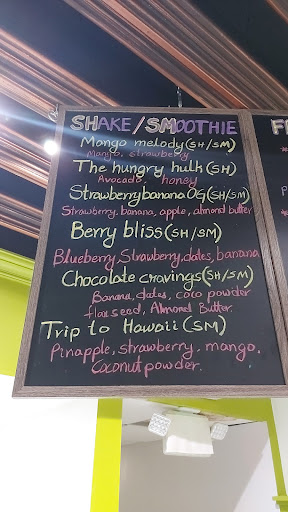 SHAKE/SMOOTHIE
Mango melody(SH/SM)
Mango, strawberry
The hungry hulh (SH)
Avocado, honey
Strawberrybanana OG(SH/SM)
Strawberry, banana, apple, almond butter.
Berry bliss(SH/SM)
Blueberry Strawberry, dates, banana
Chocolate cravings(SH/SM)
Banana, dates, coco powder
flaxseed, Almond Butter.
Trip to Hawaii (SM)
Pinapple, strawberry, mango,
Coconut powder.